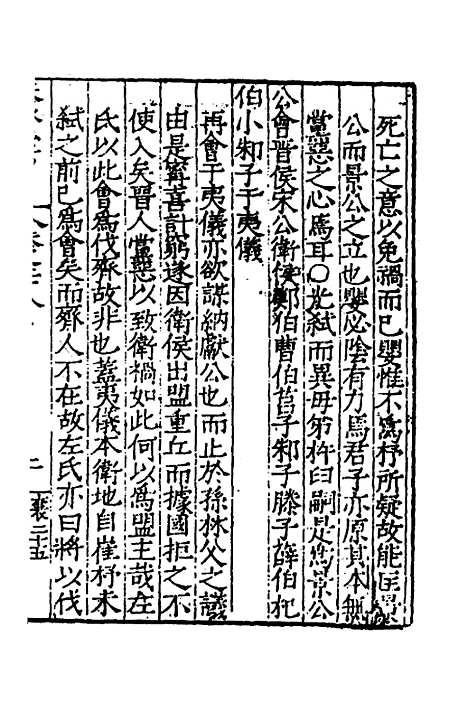 死亡之意以免禍而已嬰惟不爲杼所疑故能匡景
公而景公之立也嬰必陰有力焉君子亦原其本無
黨惡之心焉耳○光弑而異母弟杵臼嗣是爲景公
公會晉侯宋公衛侯鄭伯曹伯莒子邾子滕子薛伯杞
伯小邾子于夷儀
再會于夷儀亦欲謀納獻公也而止於孫林父之議
由是甯喜計窮遂因衛侯出盟重丘而據國拒之不
使入矣晉人黨惡以致衛禍如此何以爲盟主哉左
氏以此會爲伐齊故非也蓋夷儀本衛地自崔杼未
弑之前已爲會矣而齊人不在故左氏亦曰將以伐
襄二十五